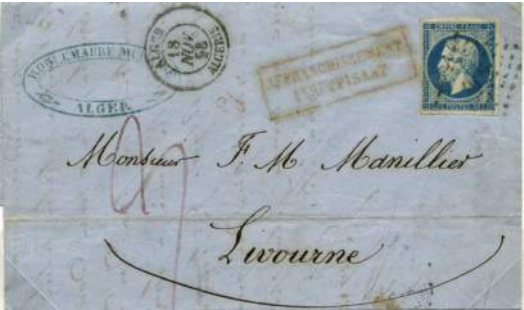 ALGER
ALGER
18
NOV.
58
ALGÉRIE
AFFRANCHISSEMENT
INSUFFISANT
EMPIRE FRANC.
Monsieur F. M. Manillier
Livourne